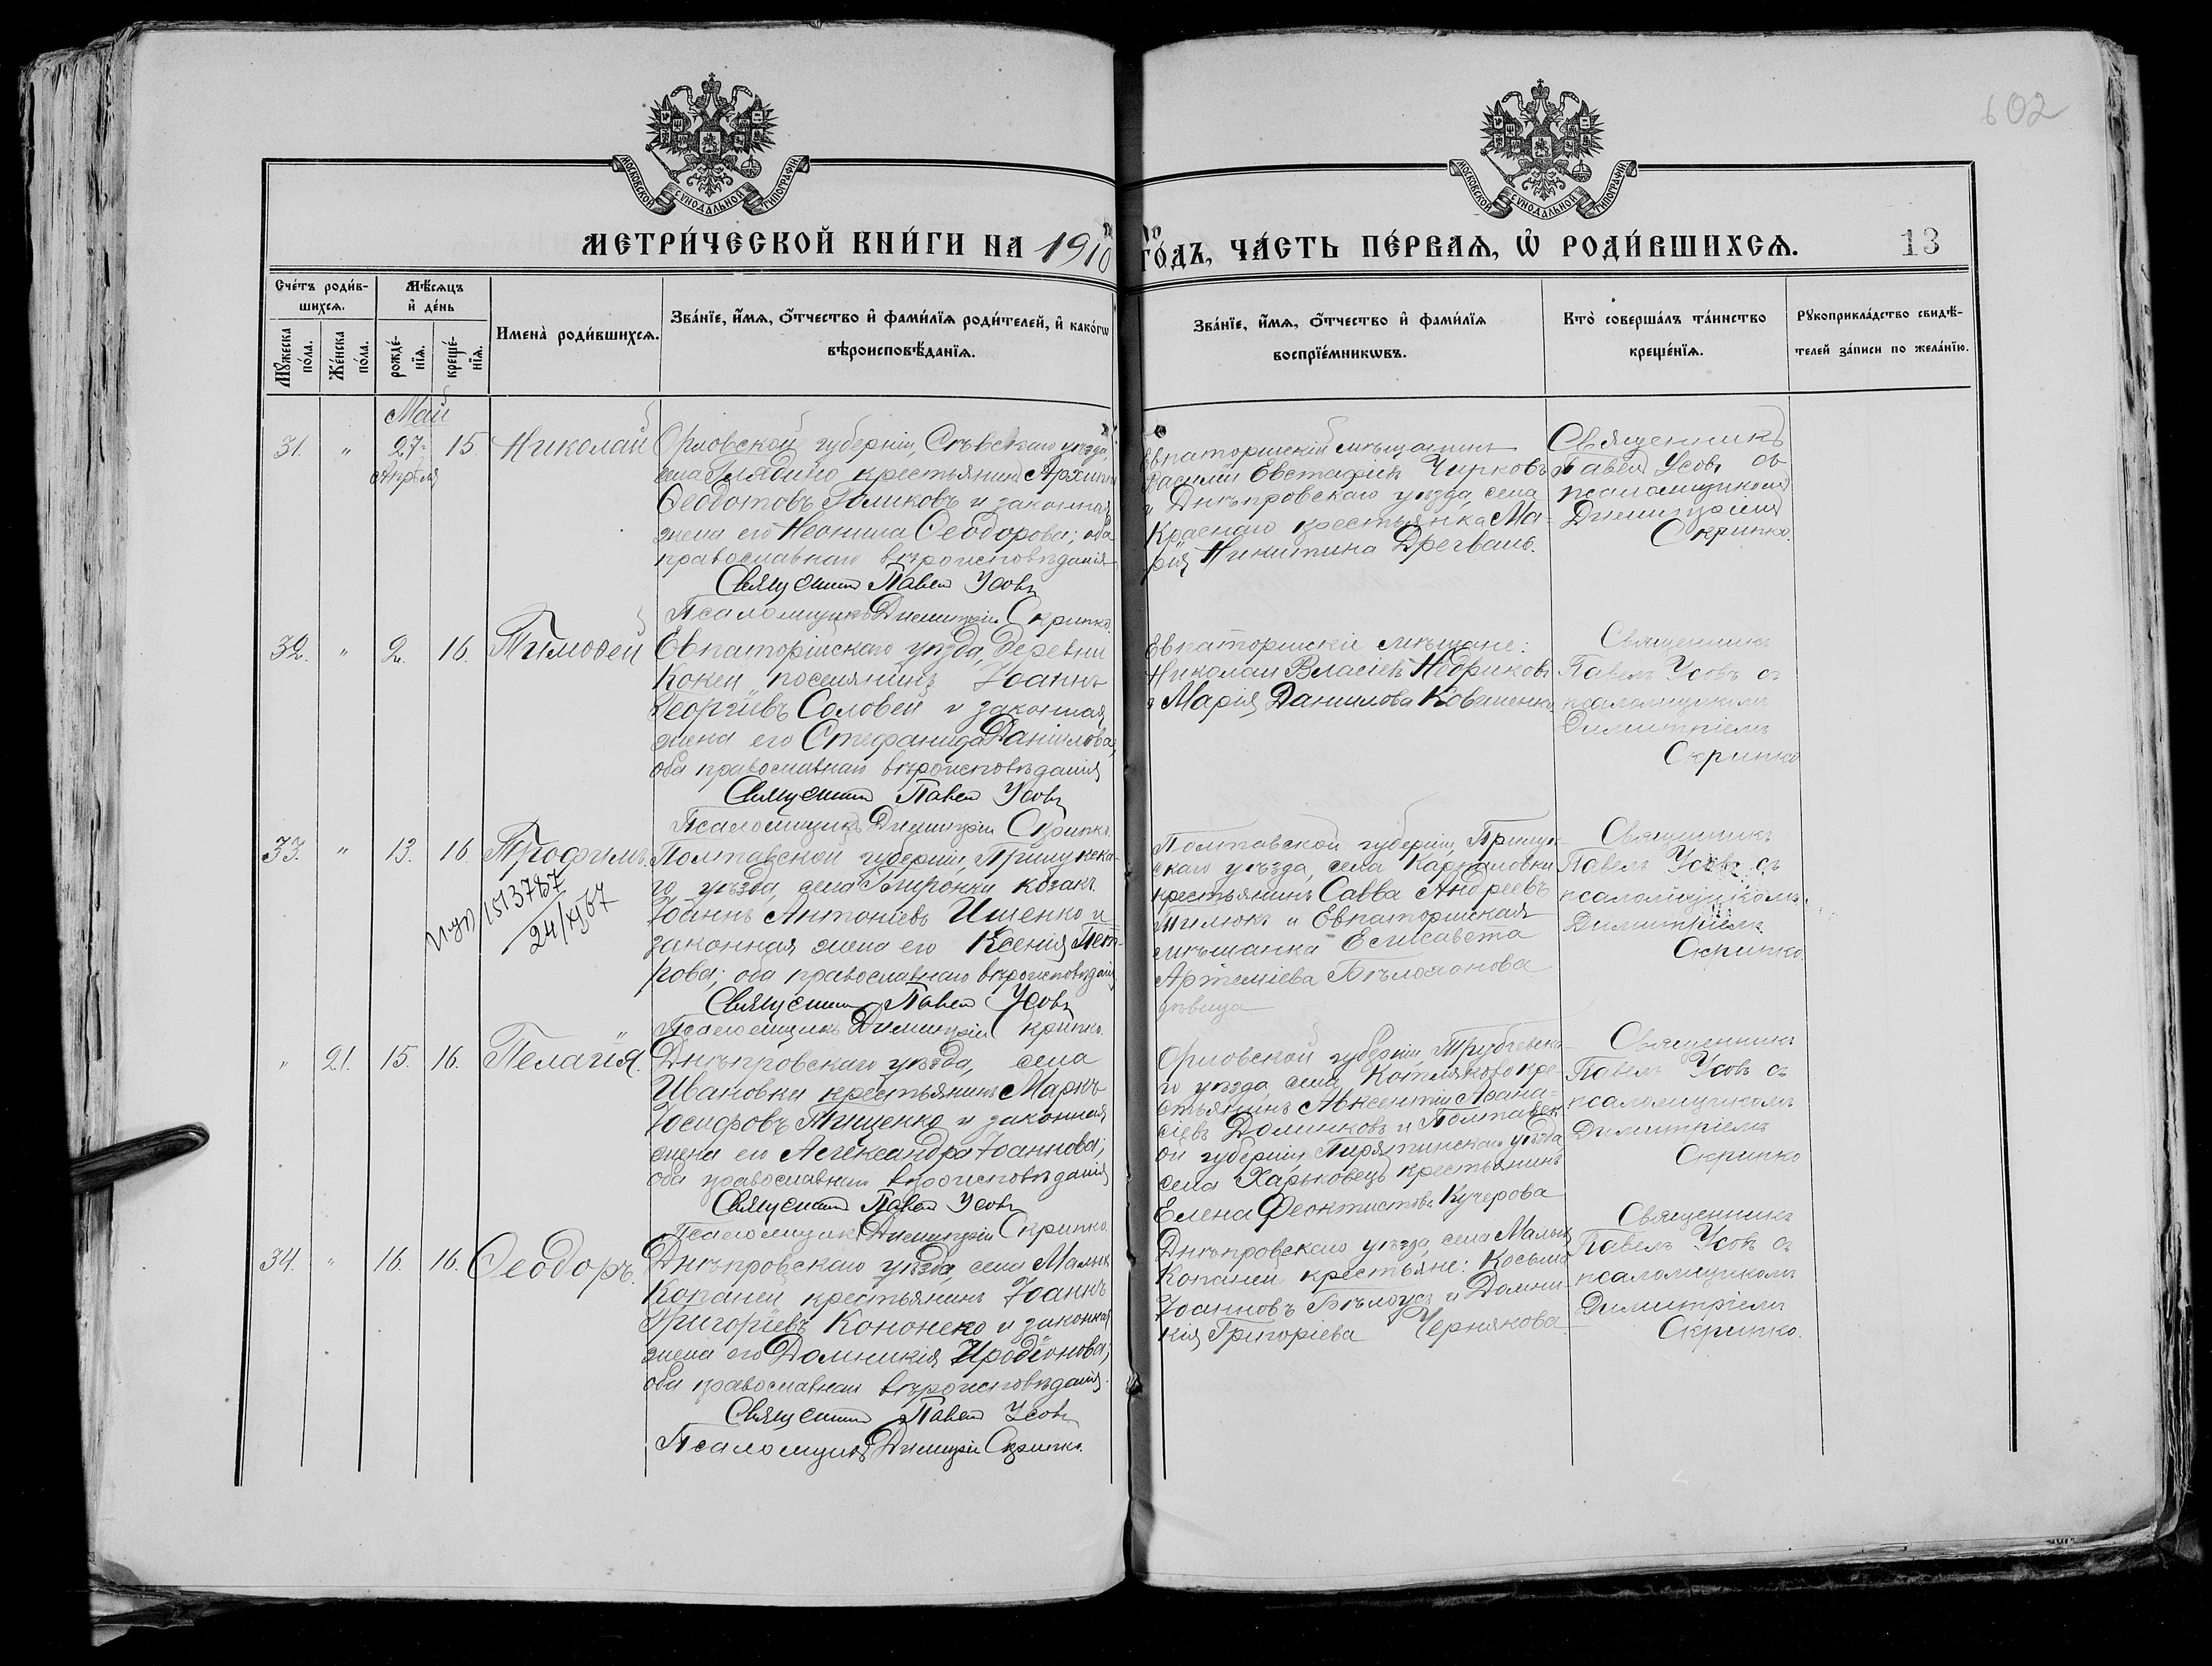 602
МОСКОВСКОЙ СУНОДАЛЬНОЙ ТИПОГРАФІИ
МОСКОВСКОЙ СУНОДАЛЬНОЙ ТИПОГРАФІИ
МЕТРИ́ЧЕСКОЙ КНИ́ГИ НА 1910
ГО́ДЪ, ЧА́СТЬ ПЕ́РВАѦ, Ѡ҆ РОДИ́ВШИХСѦ.
13
Сче́тъ роди́в-
шихсѧ.
Мꙋ́жеска по́ла.
Же́нска по́ла.
Мѣ́сѧцъ
и҆ де́нь
рожде́-
нїѧ.
креще́-
нїѧ.
Имена̀ роди́вшихсѧ.
Зва́нїе, и҆́мѧ, ѻ҆́тчество и҆ фами́лїѧ роди́телей, и҆ како́гѡ
вѣроисповѣ́данїѧ.
Зва́нїе, и҆́мѧ, ѻ҆́тчество и҆ фами́лїѧ
воспрїе́мникѡвъ.
Кто̀ соверша́лъ та́инство
креще́нїѧ.
Рꙋкоприкла́дство свидѣ́-
телей за́писи по жела́нїю.
Май
31. " 27 15 Николай
Апрѣля
Орловской губерніи, Сѣвскаго уѣзда,
села Глядино крестьянинъ Архипъ
Ѳеодотовъ Голиковъ и законная
жена его Неонила Ѳеодорова; оба
православнаго вѣроисповѣданія
Священникъ Павелъ Усовъ
Псаломщикъ Димитрій Скрипко.
Евпаторійскій мѣщанинъ
Василій Евстафіевъ Чирковъ
и Днѣпровскаго уѣзда, села
Краснаго крестьянка Ма-
рія Никитина Дрегваль.
Священникъ
Павелъ Усовъ съ
псаломщикомъ
Димитріемъ
Скрипко.
32. " 2. 16. Тимофей
Евпаторійскаго уѣзда, деревни
Кокей поселянинъ Іоаннъ
Георгіевъ Соловей и законная
жена его Стефанида Даніилова,
оба православнаго вѣроисповѣданія
Священникъ Павелъ Усовъ
Псаломщикъ Димитрій Скрипко.
Евпаторійскіе мѣщане:
Николай Власіевъ Недриковъ
и Марія Даніилова Коваленко
Священникъ
Павелъ Усовъ съ
псаломщикомъ
Димитріемъ
Скрипко
33. " 13. 16. Трофимъ.
1513787
24/XI 67
Полтавской губерніи, Прилукска-
го уѣзда, села козакъ
Іоаннъ Антоніевъ Ищенко и
законная жена его Ксенія Пет-
рова; оба православнаго вѣроисповѣданія
Священникъ Павелъ Усовъ
Псаломщикъ Димитрій Скрипко.
Полтавской губерніи, Прилук-
скаго уѣзда, села
крестьянинъ Савва Андреевъ
и Евпаторійская
мѣщанка Елисавета
Артеміева
дѣвица
Священникъ
Павелъ Усовъ съ
псаломщикомъ
Димитріемъ
Скрипко
" 21. 15. 16. Пелагія.
Днѣпровскаго уѣзда, села
Ивановки крестьянинъ Маркъ
Іосифовъ Тищенко и законная
жена его Александра Іоаннова;
оба православнаго вѣроисповѣданія
Священникъ Павелъ Усовъ
Псаломщикъ Димитрій Скрипко.
Орловской губерніи, Трубчевска-
го уѣзда, села Котляково кре-
стьянинъ Авксентій Аѳана-
сіевъ Доликовъ и Полтавск-
ой губерніи, Пирятинскаго уѣзда
села Харьковецъ крестьянинъ
Елена Феоктистова Кучерова
Священникъ
Павелъ Усовъ съ
псаломщикомъ
Димитріемъ
Скрипко
34. " 16. 16. Ѳеодоръ.
Днѣпровскаго уѣзда, села Малыя
Копаней крестьянинъ Іоаннъ
Григоріевъ Кононеко и законная
жена его Домникія Иродіонова;
оба православнаго вѣроисповѣданія.
Священникъ Павелъ Усовъ
Псаломщикъ Димитрій Скрипко.
Днѣпровскаго уѣзда, села Малыя
Копаней крестьяне: Косьма
Іоанновъ Бѣлоусъ и Домни-
кія Григоріева Чернякова.
Священникъ
Павелъ Усовъ съ
псаломщикомъ
Димитріемъ
Скрипко.